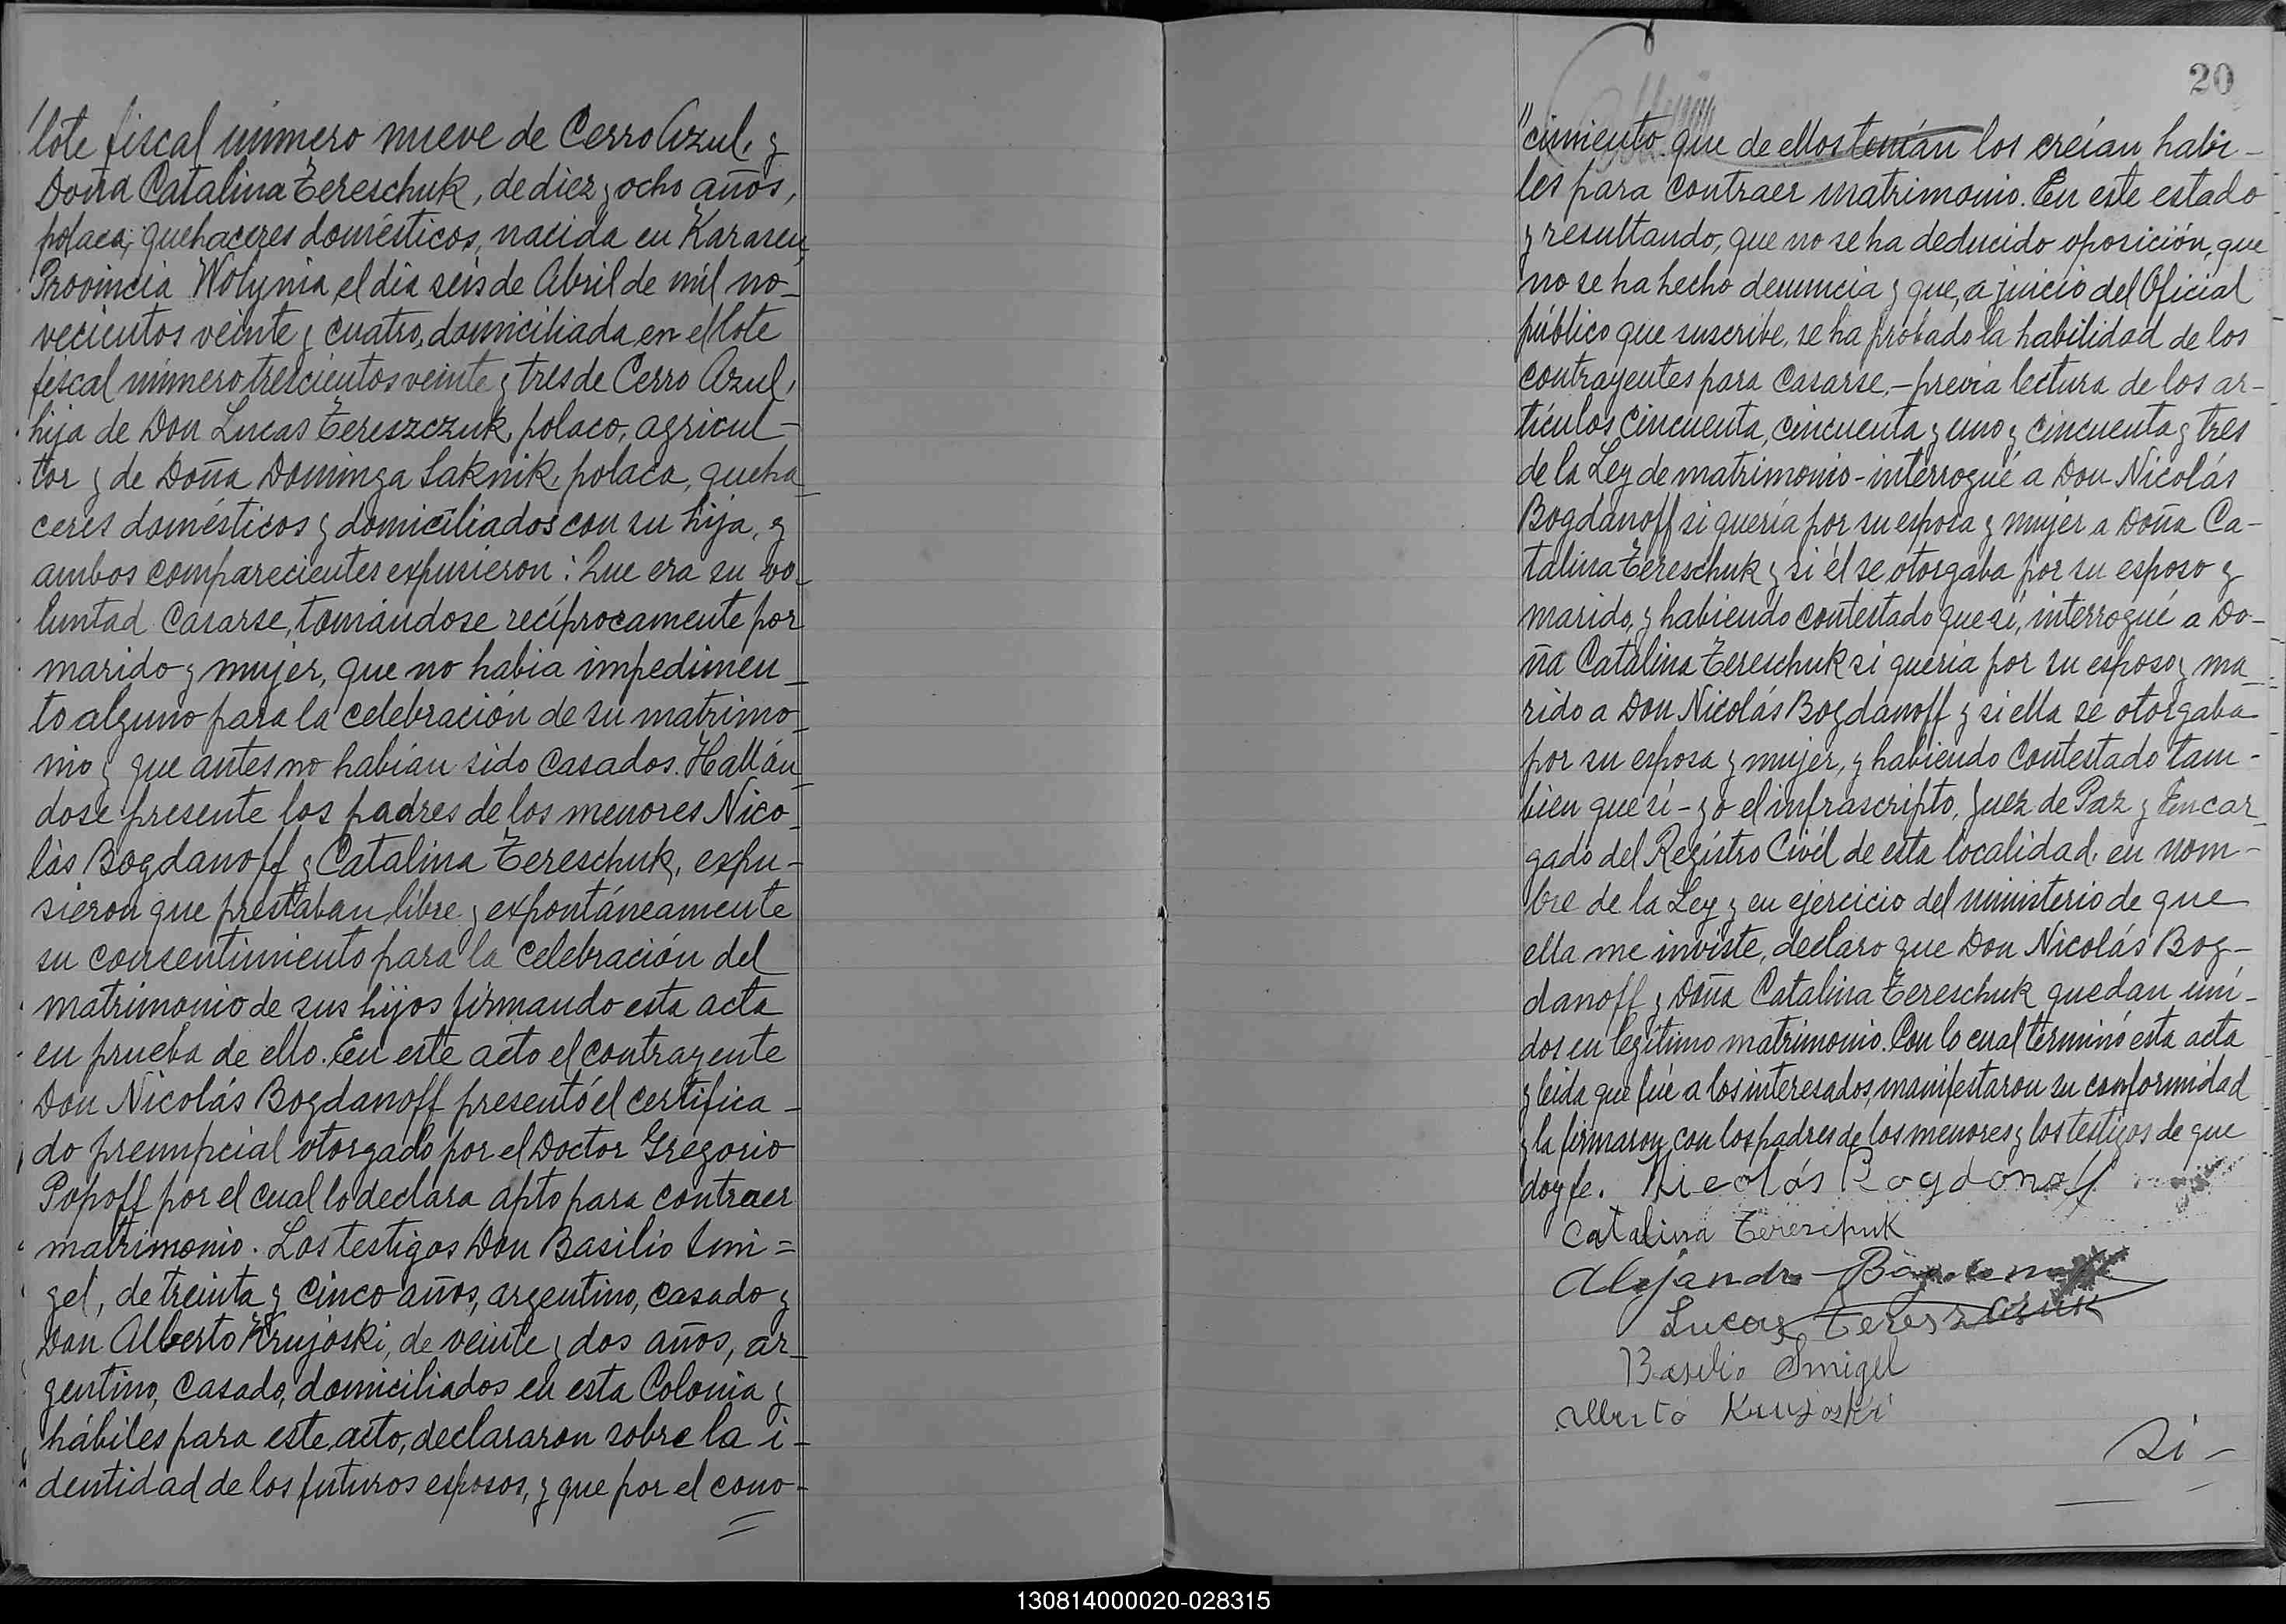 lote fiscal número nueve de Cerro Azul, y
Doña Catalina Tereschuk, de diez y ocho años,
polaca, quehaceres domésticos, nacida en Karasen,
Provincia Wolynia el dia seis de Abril de mil no-
vecientos veinte y cuatro, domiciliada en el lote
fiscal número trescientos veinte y tres de Cerro Azul,
hija de Don Lucas Tereszczuk, polaco, agricul-
tor y de Doña Dominga Saknik, polaca, queha-
ceres domésticos y domiciliados con su hija, y
ambos comparecientes expusieron: Que era su vo-
luntad casarse, tomándose recíprocamente por
marido y mujer, que no habia impedimen-
to alguno para la celebración de su matrimo-
nio y que antes no habían sido casados. Hallán-
dose presente los padres de los menores Nico-
lás Bogdanoff y Catalina Tereschuk, expu-
sieron que prestaban libre y expontáneamente
su consentimiento para la celebración del
matrimonio de sus hijos firmando esta acta
en prueba de ello. En este acto el contrayente
Don Nicolás Bogdanoff presentó el certifica-
do prenupcial otorgado por el Doctor Gregorio
Popoff por el cual lo declara apto para contraer
matrimonio. Los testigos Don Basilio Smi=
gel, de treinta y cinco años, argentino, casado y
Don Alberto Krujoski, de veinte y dos años, ar-
gentino, casado, domiciliados en esta Colonia y
hábiles para este acto, declararon sobre la i-
dentidad de los futuros esposos, y que por el cono-
20
"cimiento que de ellos tenían los creían hábi-
les para contraer matrimonio. En este estado
y resultando, que no se ha deducido oposición, que
no se ha hecho denuncia y que, a juicio del Oficial
público que suscribe, se ha probado la habilidad de los
contrayentes para casarse.- previa lectura de los ar-
tículos cincuenta, cincuenta y uno y cincuenta y tres
de la Ley de matrimonio - interrogué a Don Nicolás
Bogdanoff si quería por su esposa y mujer a Doña Ca-
talina Tereschuk y si él se otorgaba por su esposo y
marido, y habiendo contestado que sí, interrogué a Do-
ña Catalina Tereschuk si queria por su esposo y ma-
rido a Don Nicolás Bogdanoff y si ella se otorgaba
por su esposa y mujer, y habiendo contestado tam-
bien que sí - yo el infrascripto, Juez de Paz y Encar-
gado del Registro Civil de esta localidad, en nom-
bre de la Ley y en ejercicio del ministerio de que
ella me inviste, declaro que Don Nicolás Bog-
danoff y Doña Catalina Tereschuk quedan uni-
dos en legítimo matrimonio. Con lo cual terminó esta acta
y leida que fué a los interesados, manifestaron su conformidad
y la firmaron con los padres de los menores y los testigos de que
doy fe. Nicolás Bogdanoff
Catalina Tereschuk
Alejandro
Lucas Tereszczuk
Basilio Smigel
Alberto Krujoski
Si-
130814000020-028315